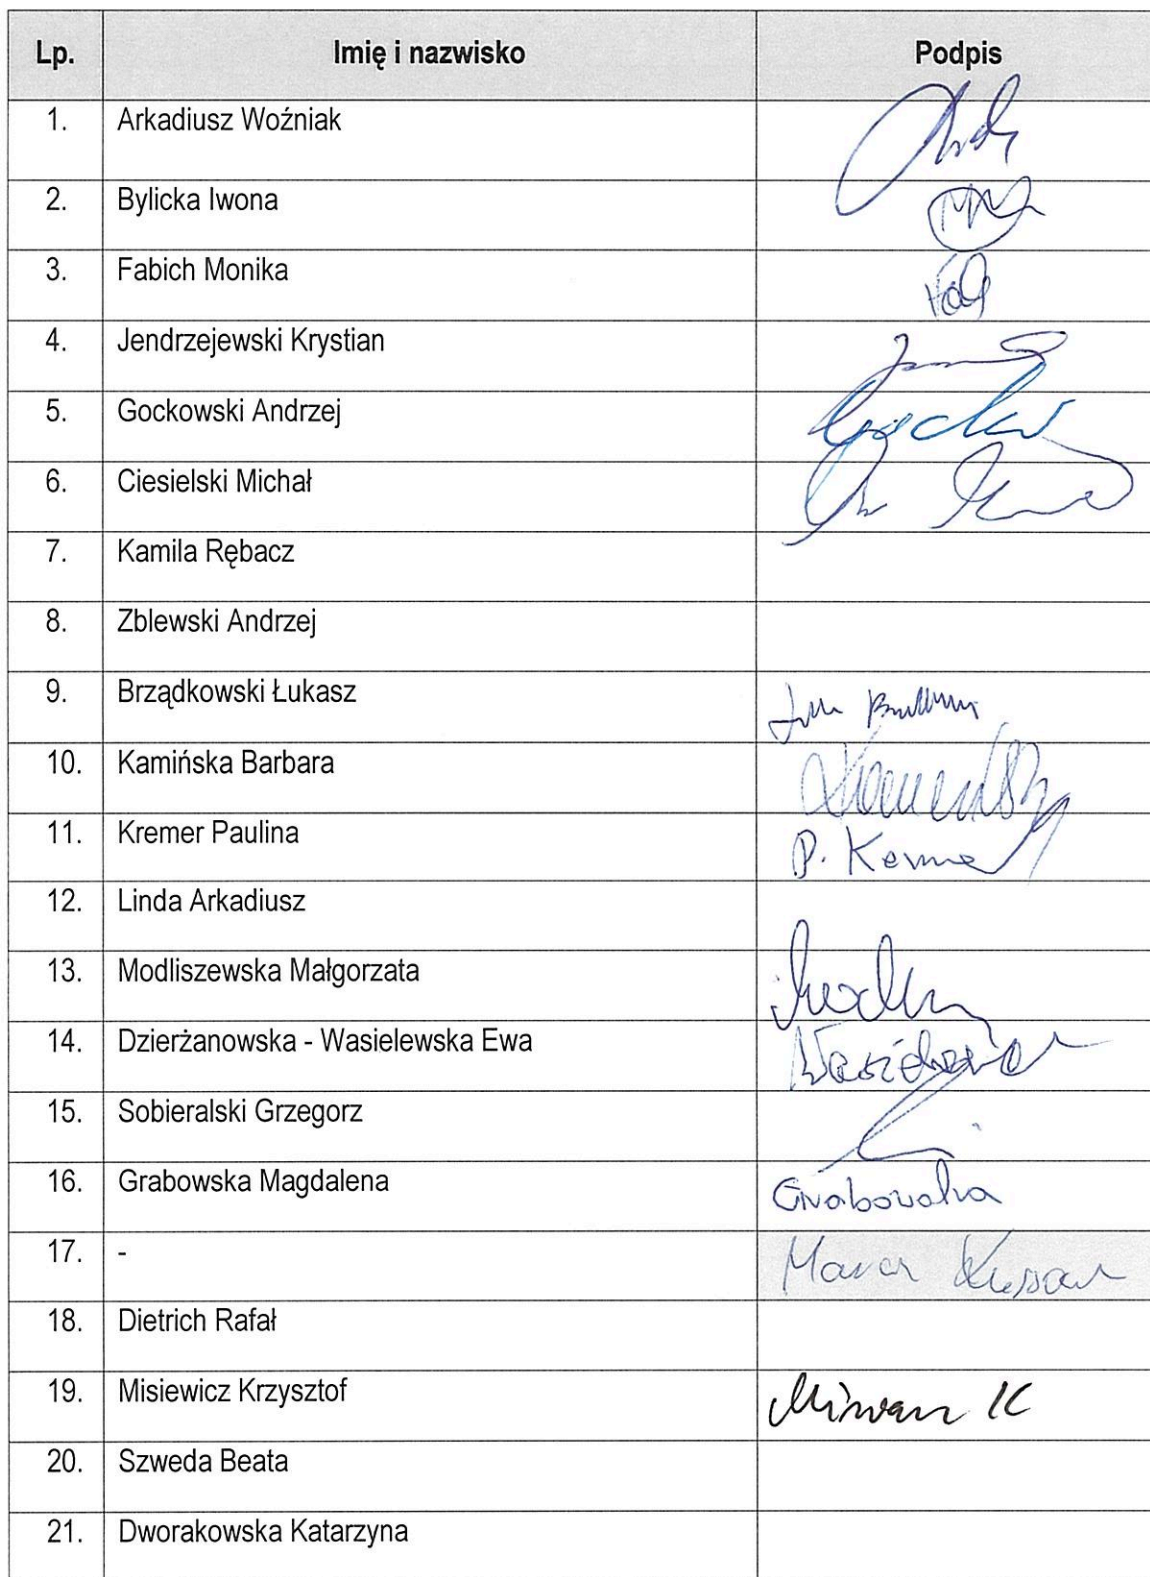 Lp. Imię i nazwisko Podpis
1. Arkadiusz Woźniak
2. Bylicka Iwona
3. Fabich Monika
4. Jendrzejewski Krystian
5. Gockowski Andrzej
6. Ciesielski Michał
7. Kamila Rębacz
8. Zblewski Andrzej
9. Brządkowski Łukasz
10. Kamińska Barbara
11. Kremer Paulina P.
12. Linda Arkadiusz
13. Modliszewska Małgorzata
14. Dzierżanowska - Wasielewska Ewa
15. Sobieralski Grzegorz
16. Grabowska Magdalena Grabowska
17. -
18. Dietrich Rafał
19. Misiewicz Krzysztof K
20. Szweda Beata
21. Dworakowska Katarzyna